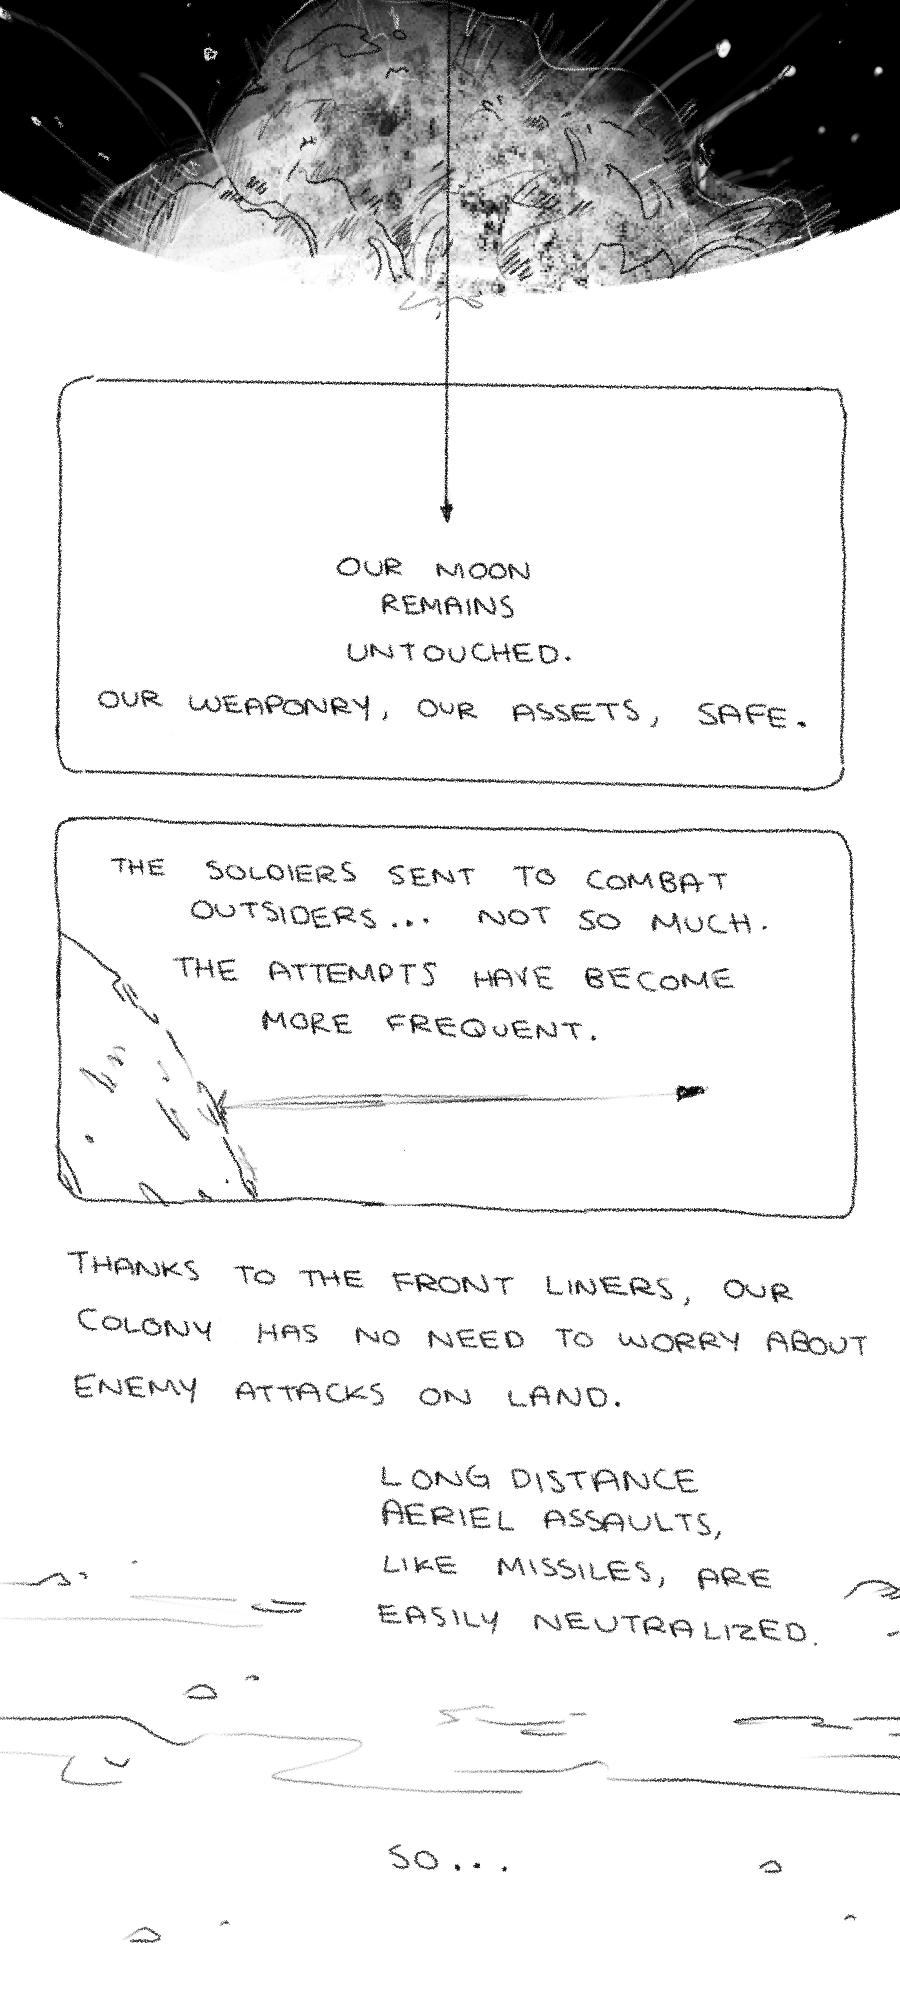 OUR MOON
REMAINS
UNTOUCHED.
OUR WEAPONRY, OUR ASSETS, SAFE.
THE SOLDIERS SENT TO COMBAT
OUTSIDERS... NOT SO MUCH.
THE ATTEMPTS HAVE BECOME
MORE FREQUENT.
THANKS TO THE FRONT LINERS, OUR
COLONY HAS NO NEED TO WORRY ABOUT
ENEMY ATTACKS ON LAND.
LONG DISTANCE
AERIEL ASSAULTS,
LIKE MISSILES, ARE
EASILY NEUTRALIZED.
SO...